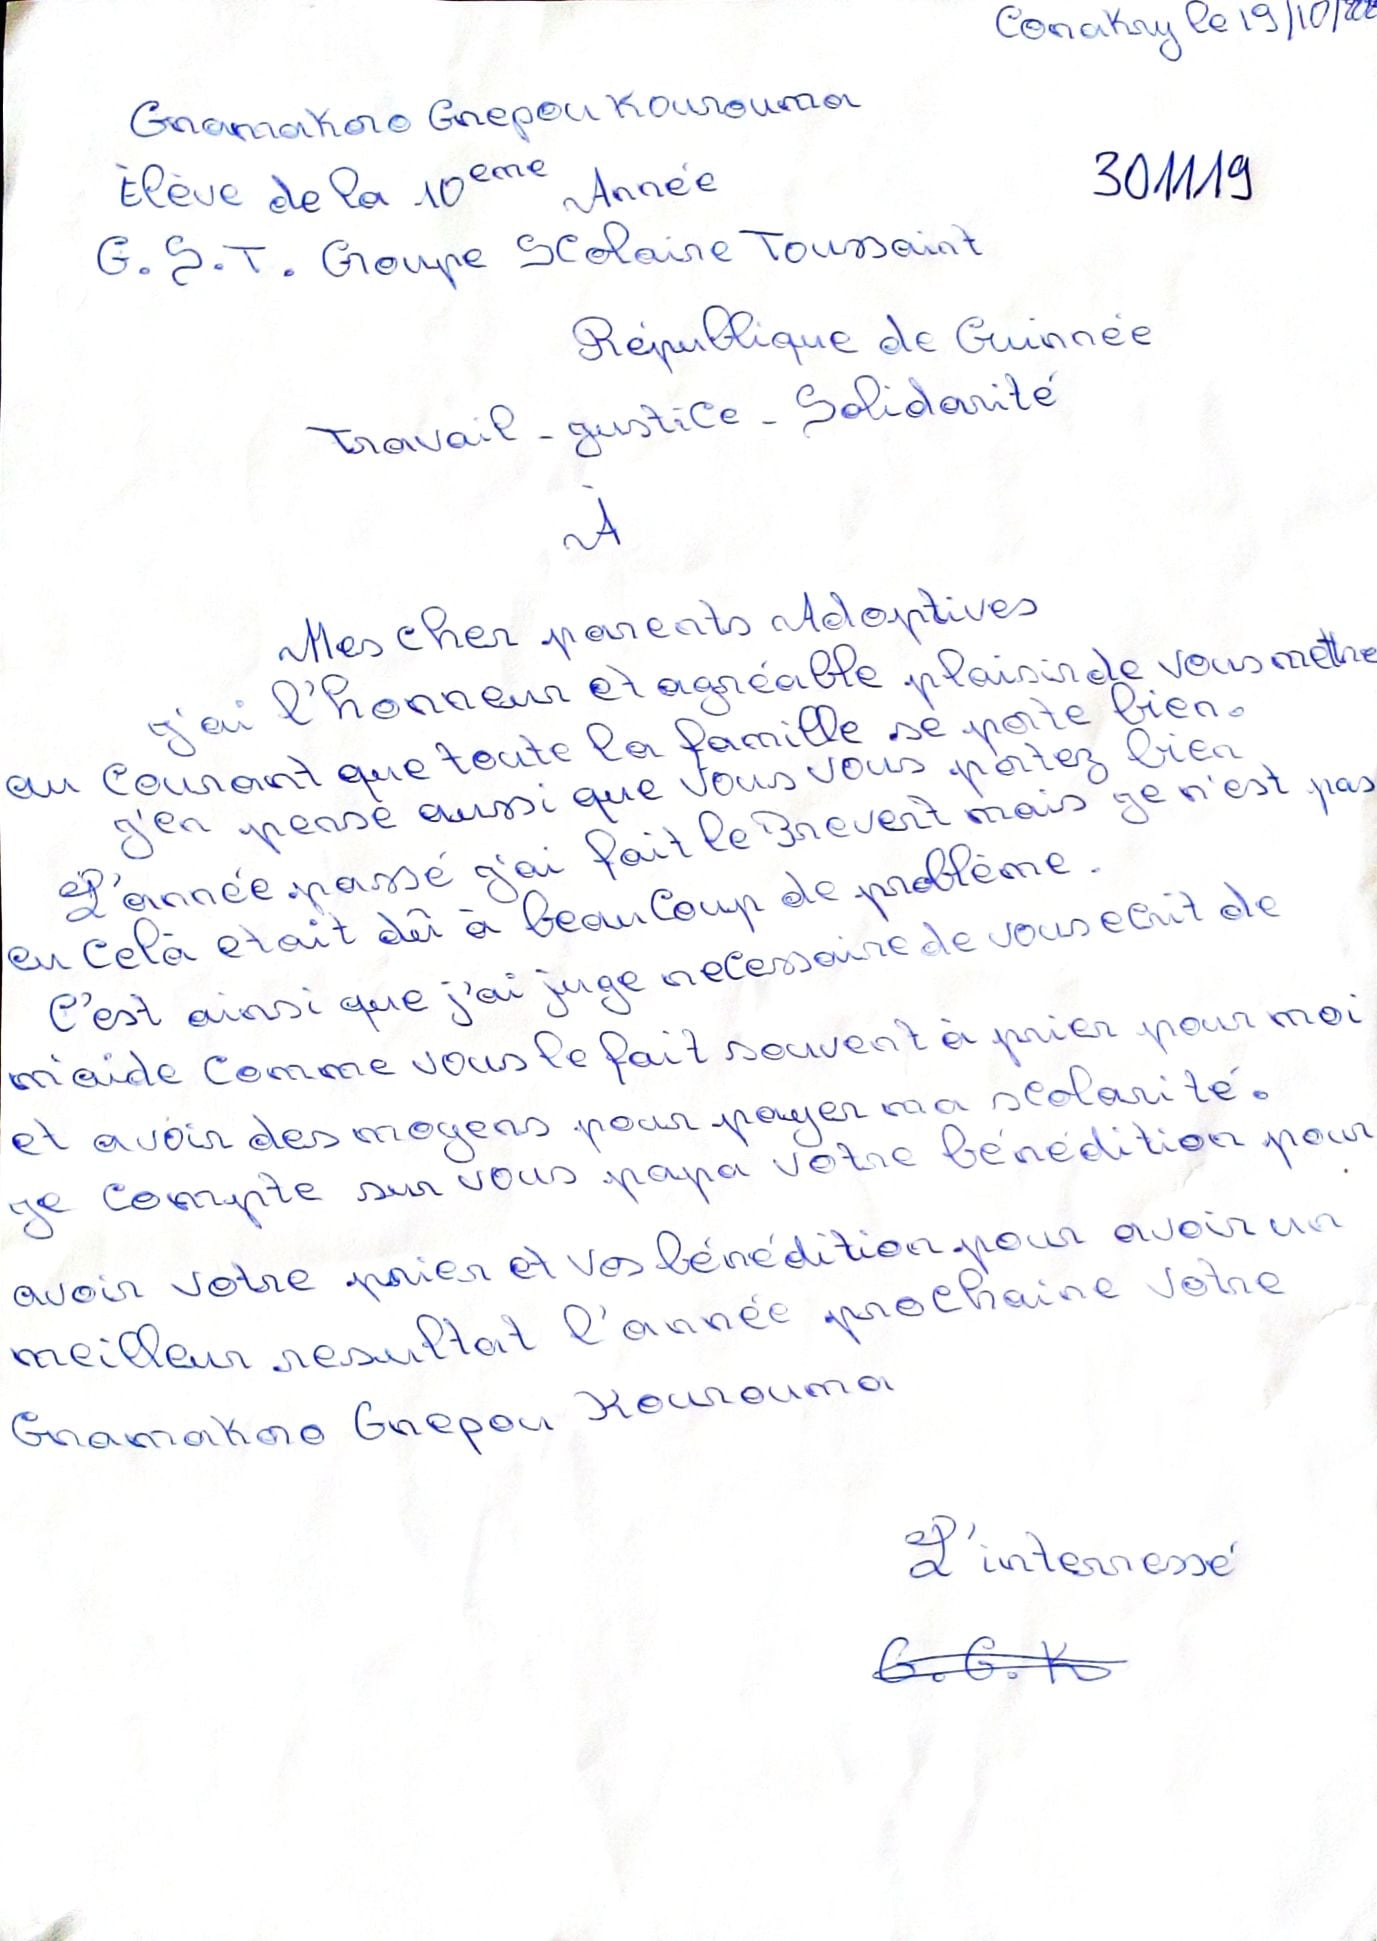 Conakry le 19/10/22
Gnamakoro Gnepou Kourouma
Èlève de la 10eme Année
301119
G.S.T. Groupe Scolaire Toussaint
République de Guinnée
Travail - justice - Solidarité
À
Mes cher parents Adoptives
j'ai l'honneur et agréable plaisir de vous mettre
au courant que toute la famille se porte bien.
j'en pense aussi que vous vous portez bien
L'année passé j'ai fait le Brevert mais je n'est pas
eu celà etait dû à beaucoup de problème.
C'est ainsi que j'ai juge necessaire de vous ecrit de
m'aide comme vous le fait souvent à prier pour moi
et avoir des moyens pour payer ma scolarité.
je compte sur vous papa votre bénédition pour
avoir votre prier et vos bénédition pour avoir un
meilleur resultat l'année prochaine votre
Gnamakoro Gnepou Kourouma
L'interressé
G.G.K